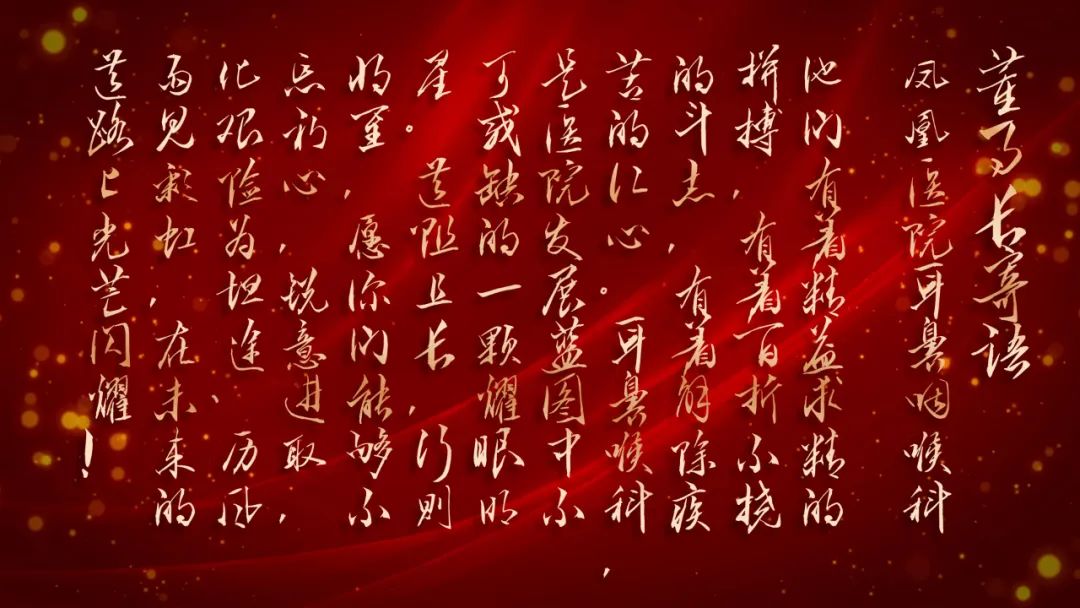 董事长寄语
凤凰医院耳鼻咽喉科
他们有着精益求精的
拼搏，有着百折不挠
的斗志，有着解除疾
苦的仁心。耳鼻喉科，
是医院发展蓝图中不
可或缺的一颗耀眼明
星。道阻且长，行则
将至，愿你们能够不
忘初心，锐意进取，
化艰险为坦途、历风
雨见彩虹，在未来的
道路上光芒闪耀！